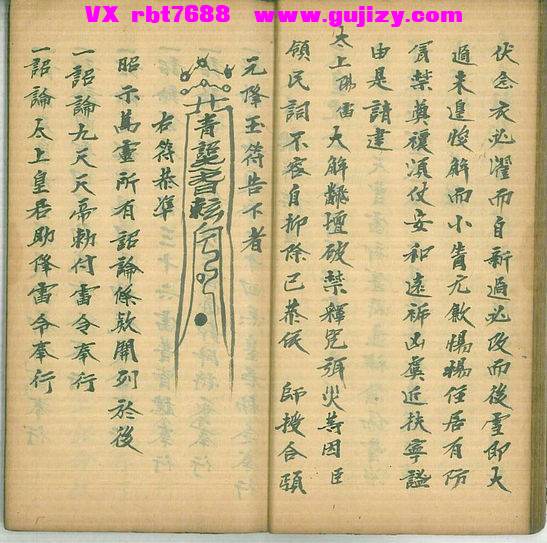 VX rbt7688 www.gujizy.com
伏念衣必濯而自新過必改而後虛即大
過未遑悛解而小眚无歉惕住居有防
禁奠禳須仗安和遠祈凶虞近扶寧謐
由是請建
太上陽雷大解穢壇破禁釋咒弭火等因臣
領民詞不容自抑除已恭依 師授合頒
元降玉符告下者
右符恭準
昭示萬靈所有詔論條款開列於後
一詔論九天天帝勅付雷令奉行
一詔論太上皇君助降雷令奉行